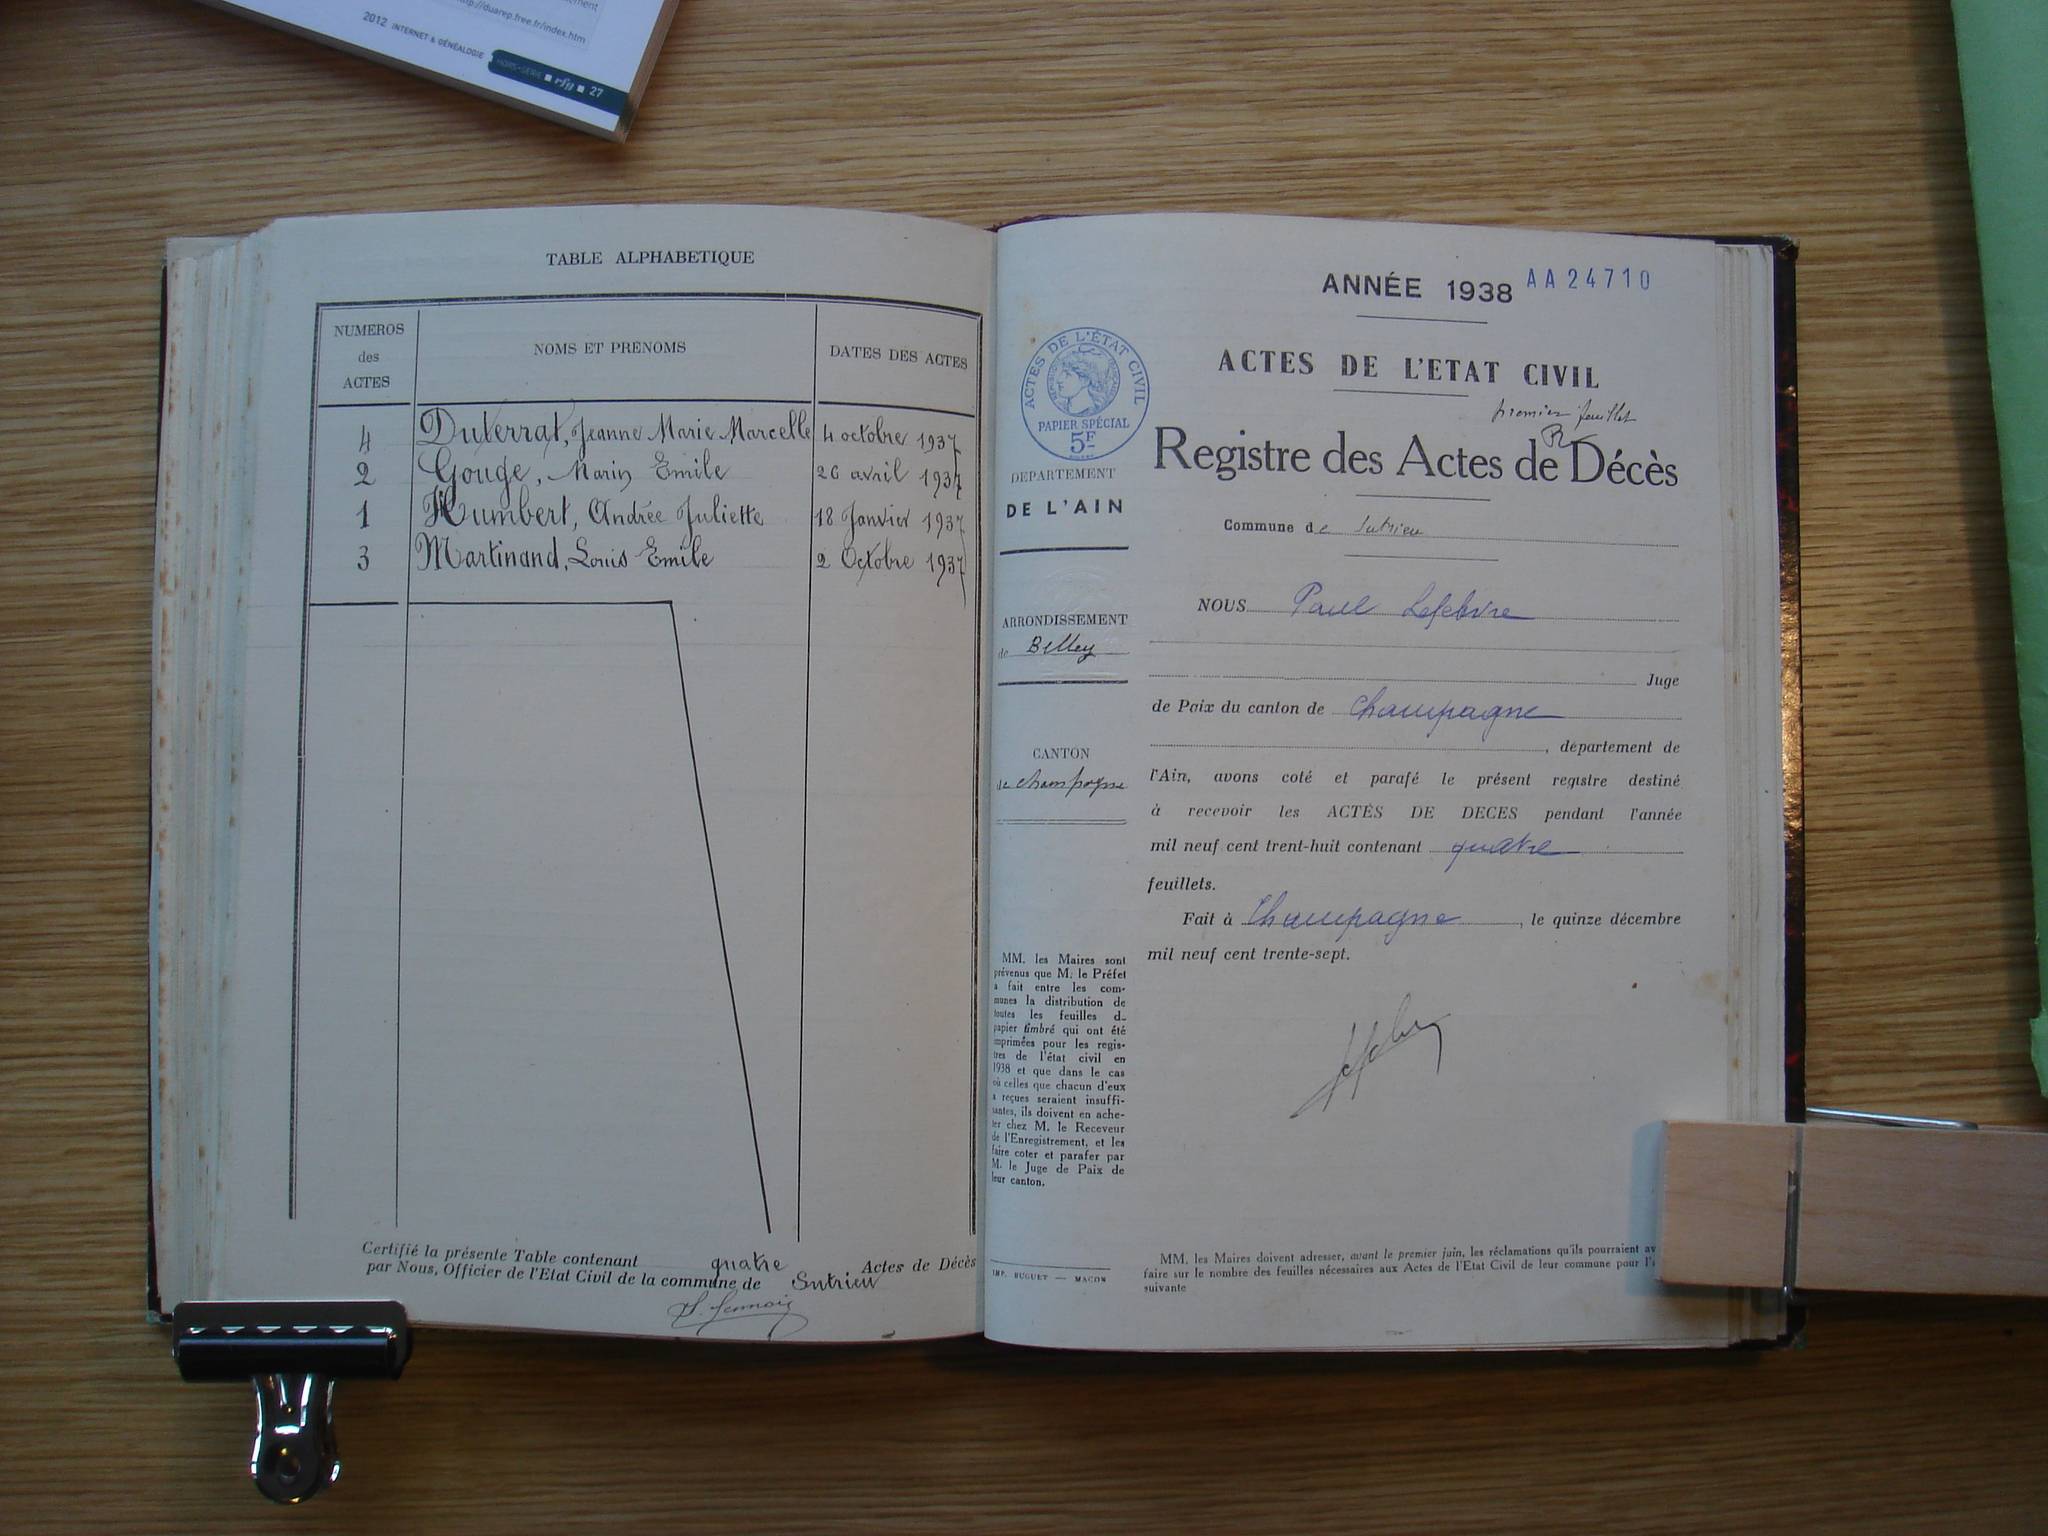 http://duarep.free.fr/index.htm
2012 INTERNET & GÉNÉALOGIE
HORS-SÉRIE ■ rfg ■ 27
TABLE ALPHABETIQUE
NUMEROS
des
ACTES
NOMS ET PRENOMS
DATES DES ACTES
4 Duterrat, Jeanne Marie Marcelle 4 octobre 1937
2 Gouge, Marin Emile 26 avril 1937
1 Humbert, Andrée Juliette 18 Janvier 1937
3 Martinand, Louis Emile 2 Octobre 1937
Certifié la présente Table contenant quatre Actes de Décès
par Nous, Officier de l'Etat Civil de la commune de Sutrieu
ANNÉE 1938 AA24710
ACTES DE L'ETAT CIVIL
premier feuillet
Registre des Actes de Décès
Commune de Sutrieu
ACTES DE L'ÉTAT CIVIL
PAPIER SPÉCIAL
5F
DEPARTEMENT
DE L'AIN
ARRONDISSEMENT
de Belley
CANTON
de Champagne
MM. les Maires sont
prévenus que M. le Préfet
a fait entre les com-
munes la distribution de
toutes les feuilles d
papier timbré qui ont été
imprimées pour les regis-
tres de l'état civil en
1938 et que dans le cas
où celles que chacun d'eux
a reçues seraient insuffi-
santes, ils doivent en ache-
ter chez M. le Receveur
de l'Enregistrement, et les
faire coter et parafer par
M. le Juge de Paix de
leur canton.
IMP. BUGUET — MACON
NOUS Paul Lefebvre
Juge
de Paix du canton de Champagne
, département de
l'Ain, avons coté et parafé le présent registre destiné
à recevoir les ACTES DE DECES pendant l'année
mil neuf cent trent-huit contenant quatre
feuillets.
Fait à Champagne, le quinze décembre
mil neuf cent trente-sept.
MM. les Maires doivent adresser, avant le premier juin, les réclamations qu'ils pourraient av
faire sur le nombre des feuilles nécessaires aux Actes de l'Etat Civil de leur commune pour l'
suivante